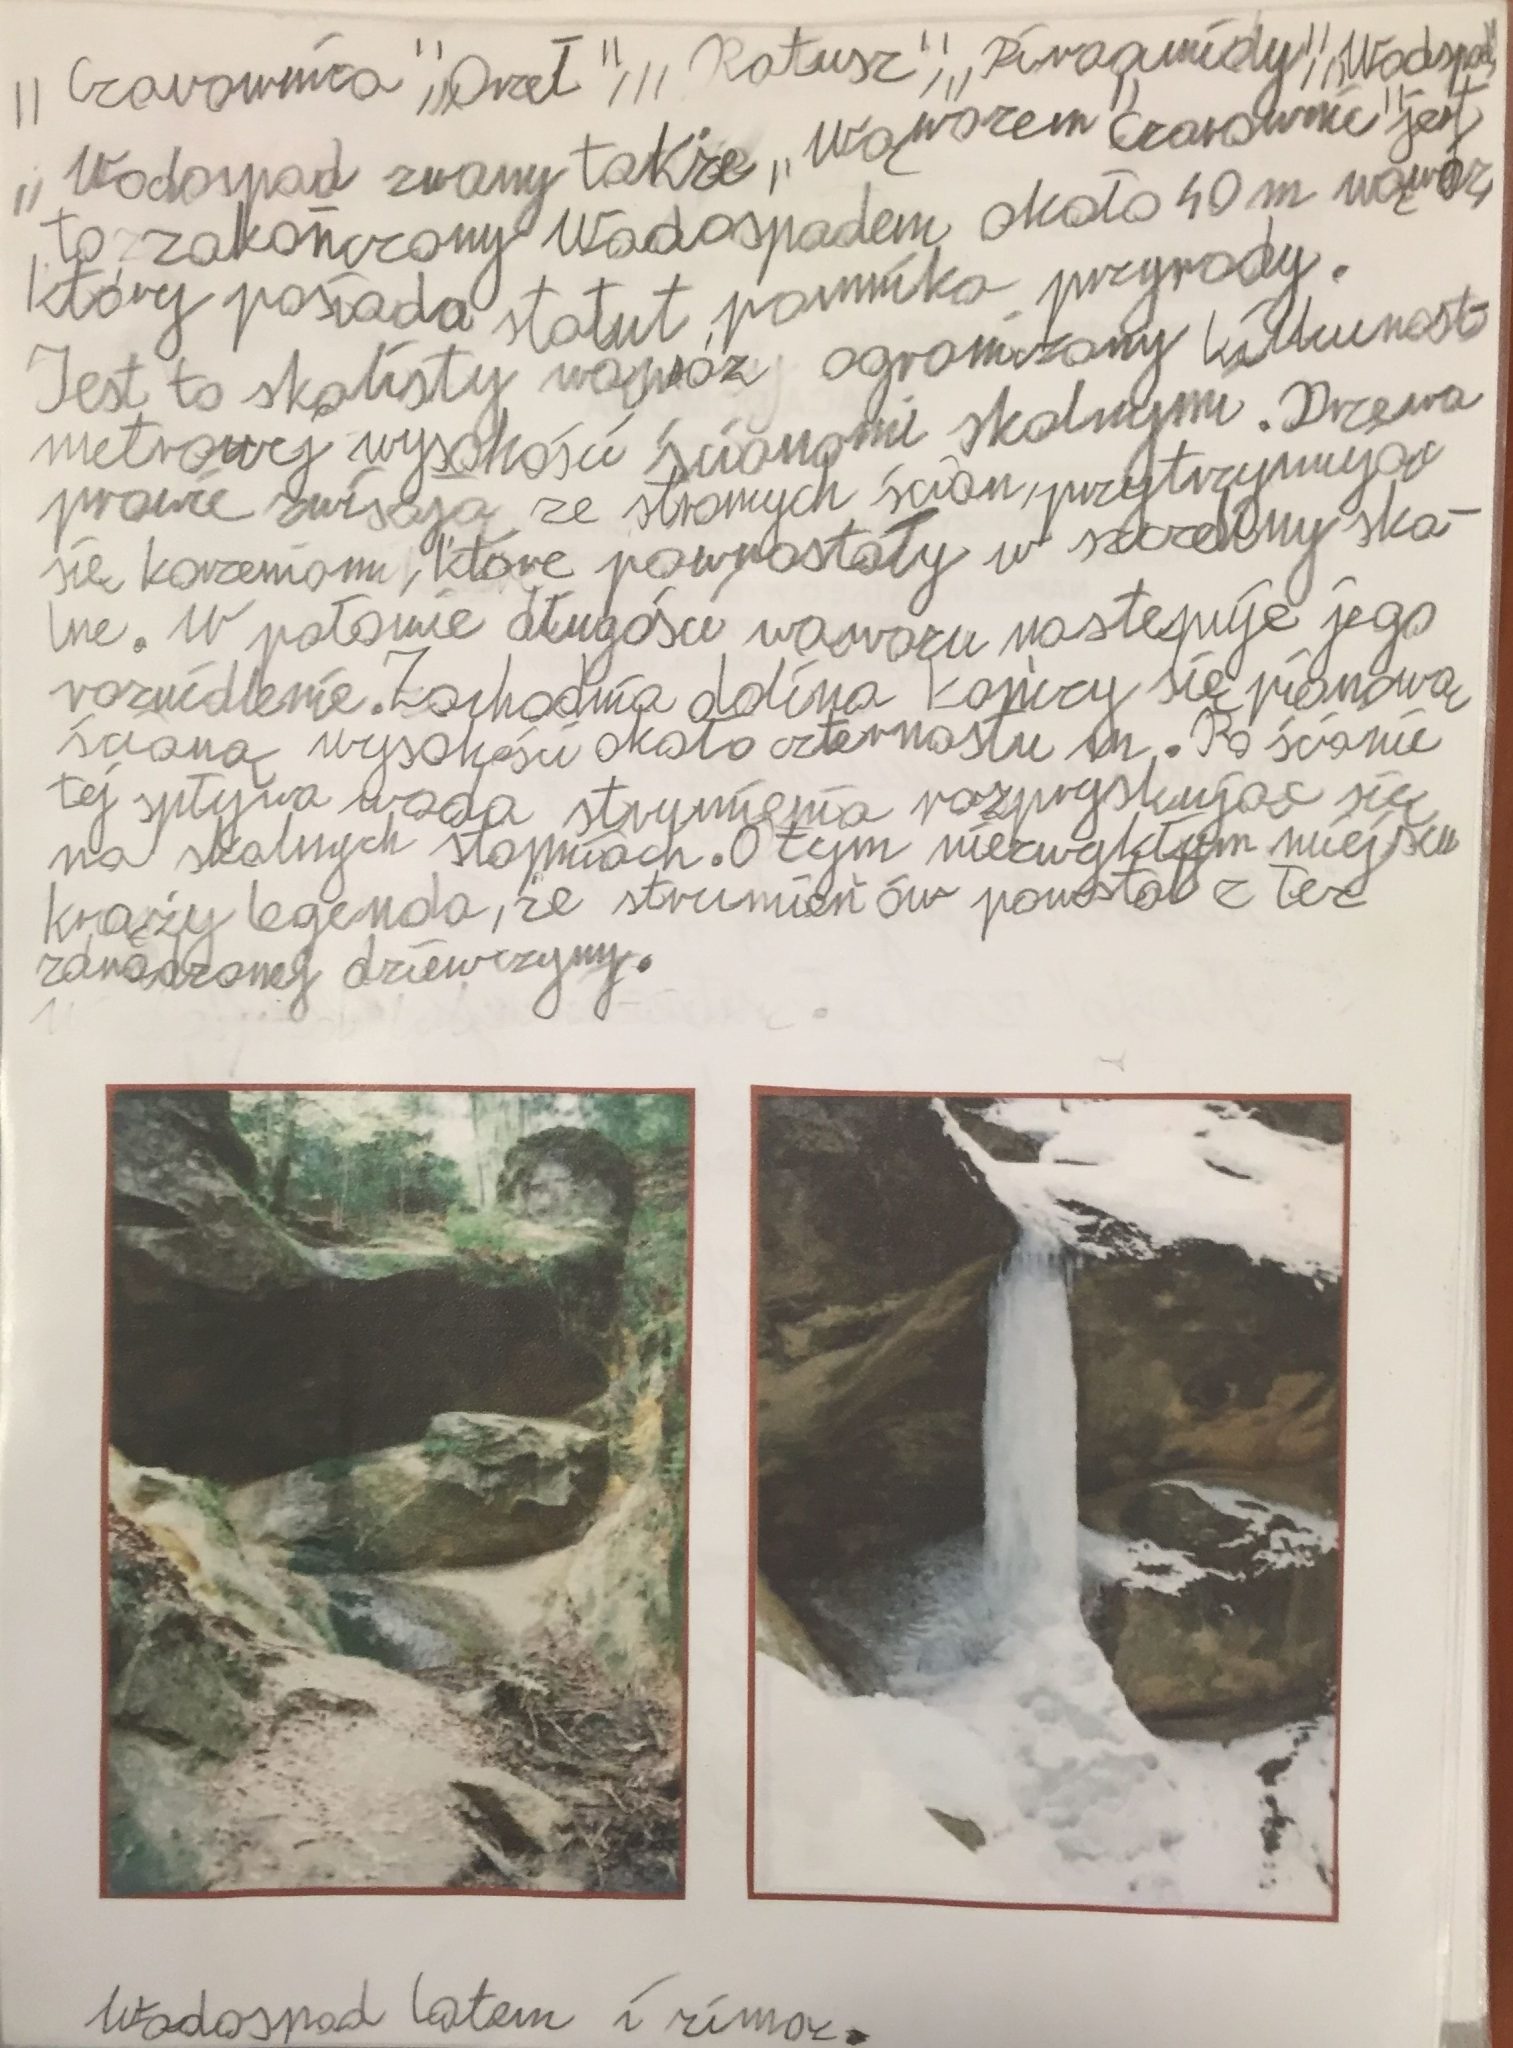 „Czarownica", „Orzeł", „Ratusz", „Piragmidy", „Wodospad"
„Wodospad zwany także „Wąwozem Czarownic" jest
to zakończony Wodospadem około 40 m wąwóz,
który posiada statut pomnika przyrody.
Jest to skalisty wąwóz ograniczony kilkunasto
metrowej wysokości ścianami skalnymi. Drzewa
prawie zwisają ze stromych ścian, przytrzymując
się korzeniami, które powrastały w szczeliny ska-
lne. W połowie długości wawozu nastepuje jego
rozwidlenie. Zachodnia dolina kończy się pionową
ścianą wysokości około czternastu m. Po ścianie
tej spływa woda strumienia rozpryskując się
na skalnych stopniach. O tym niezwykłym miejscu
krąży legenda, że strumień ów powstał z łez
zdradzonej dziewczyny.
Wodospad latem i zimą.